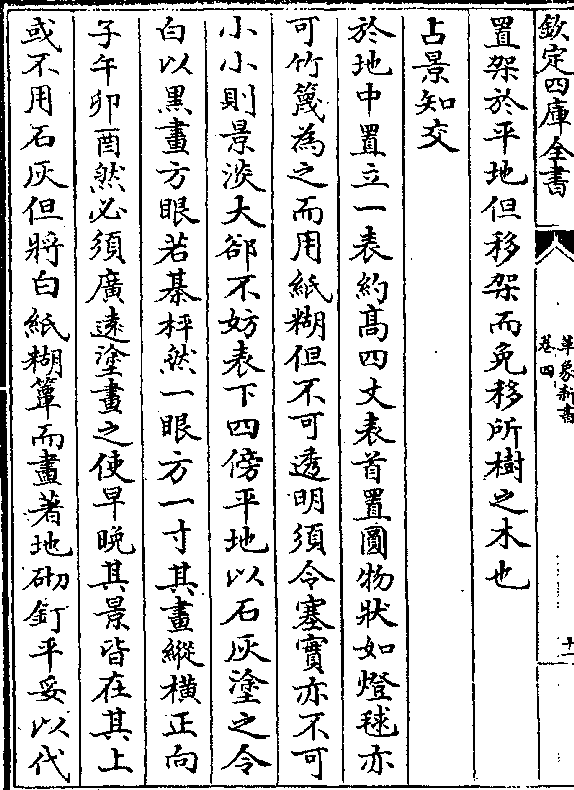 欽定四庫全書
革象新書
卷四
十一
置架於平地但移架而免移所樹之木也
占景知交
於地中置立一表約髙四丈表首置圓物狀如燈毬亦
可竹篾為之而用紙糊但不可透明須令塞實亦不可
小小則景淡大郤不妨表下四傍平地以石灰塗之令
白以黑畫方眼若棊枰然一眼方一寸其畫縱横正向
子午卯酉然必須廣逺塗畫之使早晚其景皆在其上
或不用石灰但將白紙糊簟而畫著地砌釘平妥以代